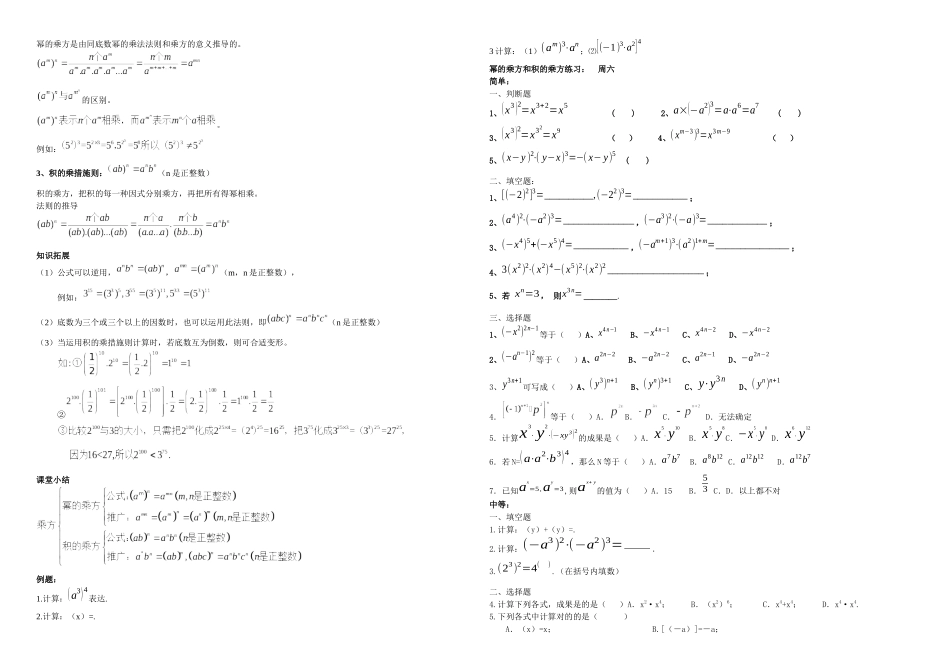 幂的乘方是由同底数幂的乘法法则和乘方的意义推导的。
(aᵐ)ⁿ = n个aᵐ / aᵐ.aᵐ.aᵐ.aᵐ...aᵐ = n个m / aᵐ⁺ᵐ⁺…⁺ᵐ = aᵐⁿ
(aᵐ)ⁿ与a^(mⁿ)的区别。
(aᵐ)ⁿ表示n个aᵐ相乘，而a^(mⁿ)表示mⁿ个a相乘。
3、积的乘措施则：(ab)ⁿ = aⁿbⁿ（n 是正整数）
积的乘方，把积的每一种因式分别乘方，再把所有得幂相乘。
法则的推导
(ab)ⁿ = n个ab / (ab).(ab)...(ab) = n个a / (a.a...a) . n个b / (b.b...b) = aⁿbⁿ
知识拓展
（1）公式可以逆用，aⁿbⁿ = (ab)ⁿ，aᵐⁿ = (aᵐ)ⁿ（m，n 是正整数），
（2）底数为三个或三个以上的因数时，也可以运用此法则，即(abc)ⁿ = aⁿbⁿcⁿ（n 是正整数）
（3）当运用积的乘措施则计算时，若底数互为倒数，则可合适变形。
如:①(1/2)¹⁰.2¹⁰ = (1/2.2)¹⁰ = 1¹⁰ = 1
②2¹⁰⁰.(1/2)¹⁰¹ = [2¹⁰⁰.(1/2)¹⁰⁰].1/2 = (2.1/2)¹⁰⁰.1/2 = 1¹⁰⁰.1/2 = 1/2
因为16<27,所以2¹⁰⁰<3⁷⁵.
课堂小结
乘方
幂的乘方
公式:(aᵐ)ⁿ = aᵐⁿ(m,n是正整数)
推广: aᵐⁿ = (aᵐ)ⁿ = (aⁿ)ᵐ(m,n是正整数)
积的乘方
公式:(ab)ⁿ = aⁿbⁿ(n是正整数)
推广: aⁿbⁿ = (ab)ⁿ,(abc)ⁿ = aⁿbⁿcⁿ(n是正整数)
例题：
1.计算：(a³)⁴表达.
2.计算：（x）=.
3 计算：（1）(aᵐ)³·aⁿ；⑵[(−1)³·a²]⁴
幂的乘方和积的乘方练习： 周六
简单：
一、判断题
1、(x³)² = x³⁺² = x⁵ （ ） 2、a×(−a²)³ = a·a⁶ = a⁷ （ ）
3、(x³)² = x^(3²) = x⁹ （ ） 4、(xᵐ⁻³)³ = x³ᵐ⁻⁹ （ ）
5、(x−y)²·(y−x)³ = −(x−y)⁵ （ ）
二、填空题：
1、[(−2)²]³=__________,(−2²)³=__________；
2、(a⁴)²·(−a²)³=____________，(−a³)²·(−a)³=__________；
3、(−x⁴)⁵+(−x⁵)⁴=__________，(−aᵐ⁺¹)³·(a²)¹⁺ᵐ=____________；
4、3(x²)²·(x²)⁴−(x⁵)²·(x²)²________________；
5、若 xⁿ=3， 则x³ⁿ=_______.
三、选择题
1、(−x²)²ⁿ⁻¹等于（ ）A、x⁴ⁿ⁻¹ B、−x⁴ⁿ⁻¹ C、x⁴ⁿ⁻² D、−x⁴ⁿ⁻²
2、(−aⁿ⁻¹)²等于（ ）A、a²ⁿ⁻² B、−a²ⁿ⁻² C、a²ⁿ⁻¹ D、−a²ⁿ⁻²
3、y³ⁿ⁺¹可写成（ ）A、(y³)ⁿ⁺¹ B、(yⁿ)³⁺¹ C、y·y³ⁿ D、(yⁿ)ⁿ⁺¹
4．等于（ ）A． B． C． D．无法确定
5．计算x³·y²·(−xy³)²的成果是（ ）A．x⁵y¹⁰ B．x⁵y⁸ C．−x⁵y⁸ D．x⁶y¹²
6．若 N=(a·a²·b³)⁴，那么 N 等于（ ）A．a⁷b⁷ B．a⁸b¹² C．a¹²b¹² D．a¹²b⁷
7．已知aˣ=5,aʸ=3,则aˣ⁺ʸ的值为（ ）A．15 B．5/3 C．D．以上都不对
中等：
一、填空题
1.计算：（y）+（y）=.
2.计算：(−a³)²·(−a²)³=______．
3.(2³)²=4⁽ ⁾．（在括号内填数）
二、选择题
4.计算下列各式，成果是的是（ ）A．x²·x⁴； B．（x²）⁶； C．x⁴+x⁴； D．x⁴·x⁴．
5.下列各式中计算对的的是（ ）
A．（x）=x； B.[（－a）]=－a；